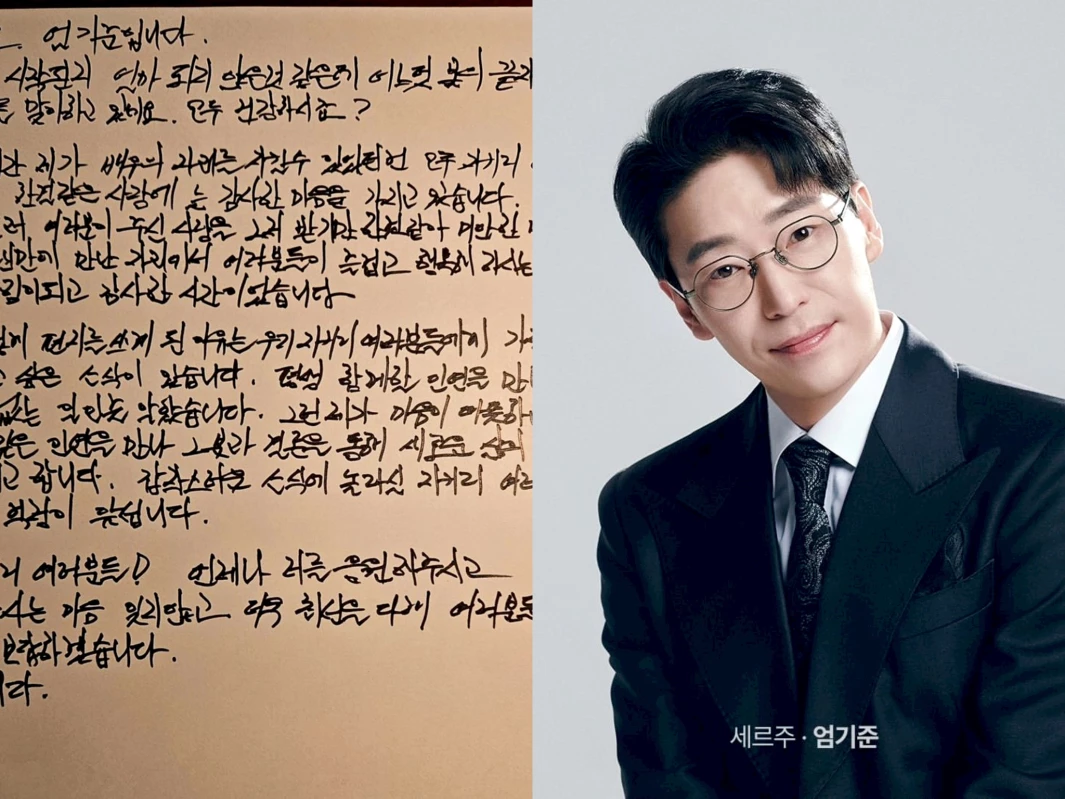 엄기준입니다.
시작된지 얼마 되지 않은것 같은데 어느덧 봄이 끝
말이하고 있네요. 모두 건강하시죠?
제가 배우의 자리를 지킬수 있었던건 모두 자기리
한결같은 사랑에 늘 감사한 마음을 가지고 있습니다.
여러분이 주신 사랑을 그저 받기만 한것같아 미안한
만에 만난 자리에서 여러분들이 즐겁고 행복해 하시는
되고 감사한 시간이었습니다
편지를 쓰게 된 이유는 우리 자기리 여러분들에게 가
싶은 소식이 있습니다. 평생 함께할 인연을 만
않았습니다. 그런 제가 마음이 따뜻하
인연을 만나 그분과 결혼을 통해 새로운 삶의
고 합니다. 갑작스러운 소식에 놀라실 자기리 여러
걱정이 됩니다.
여러분들! 언제나 저를 응원해주시고
마음 잊지않고 더욱 최선을 다해 여러분들
보답하겠습니다.
니다.
세르주 · 엄기준